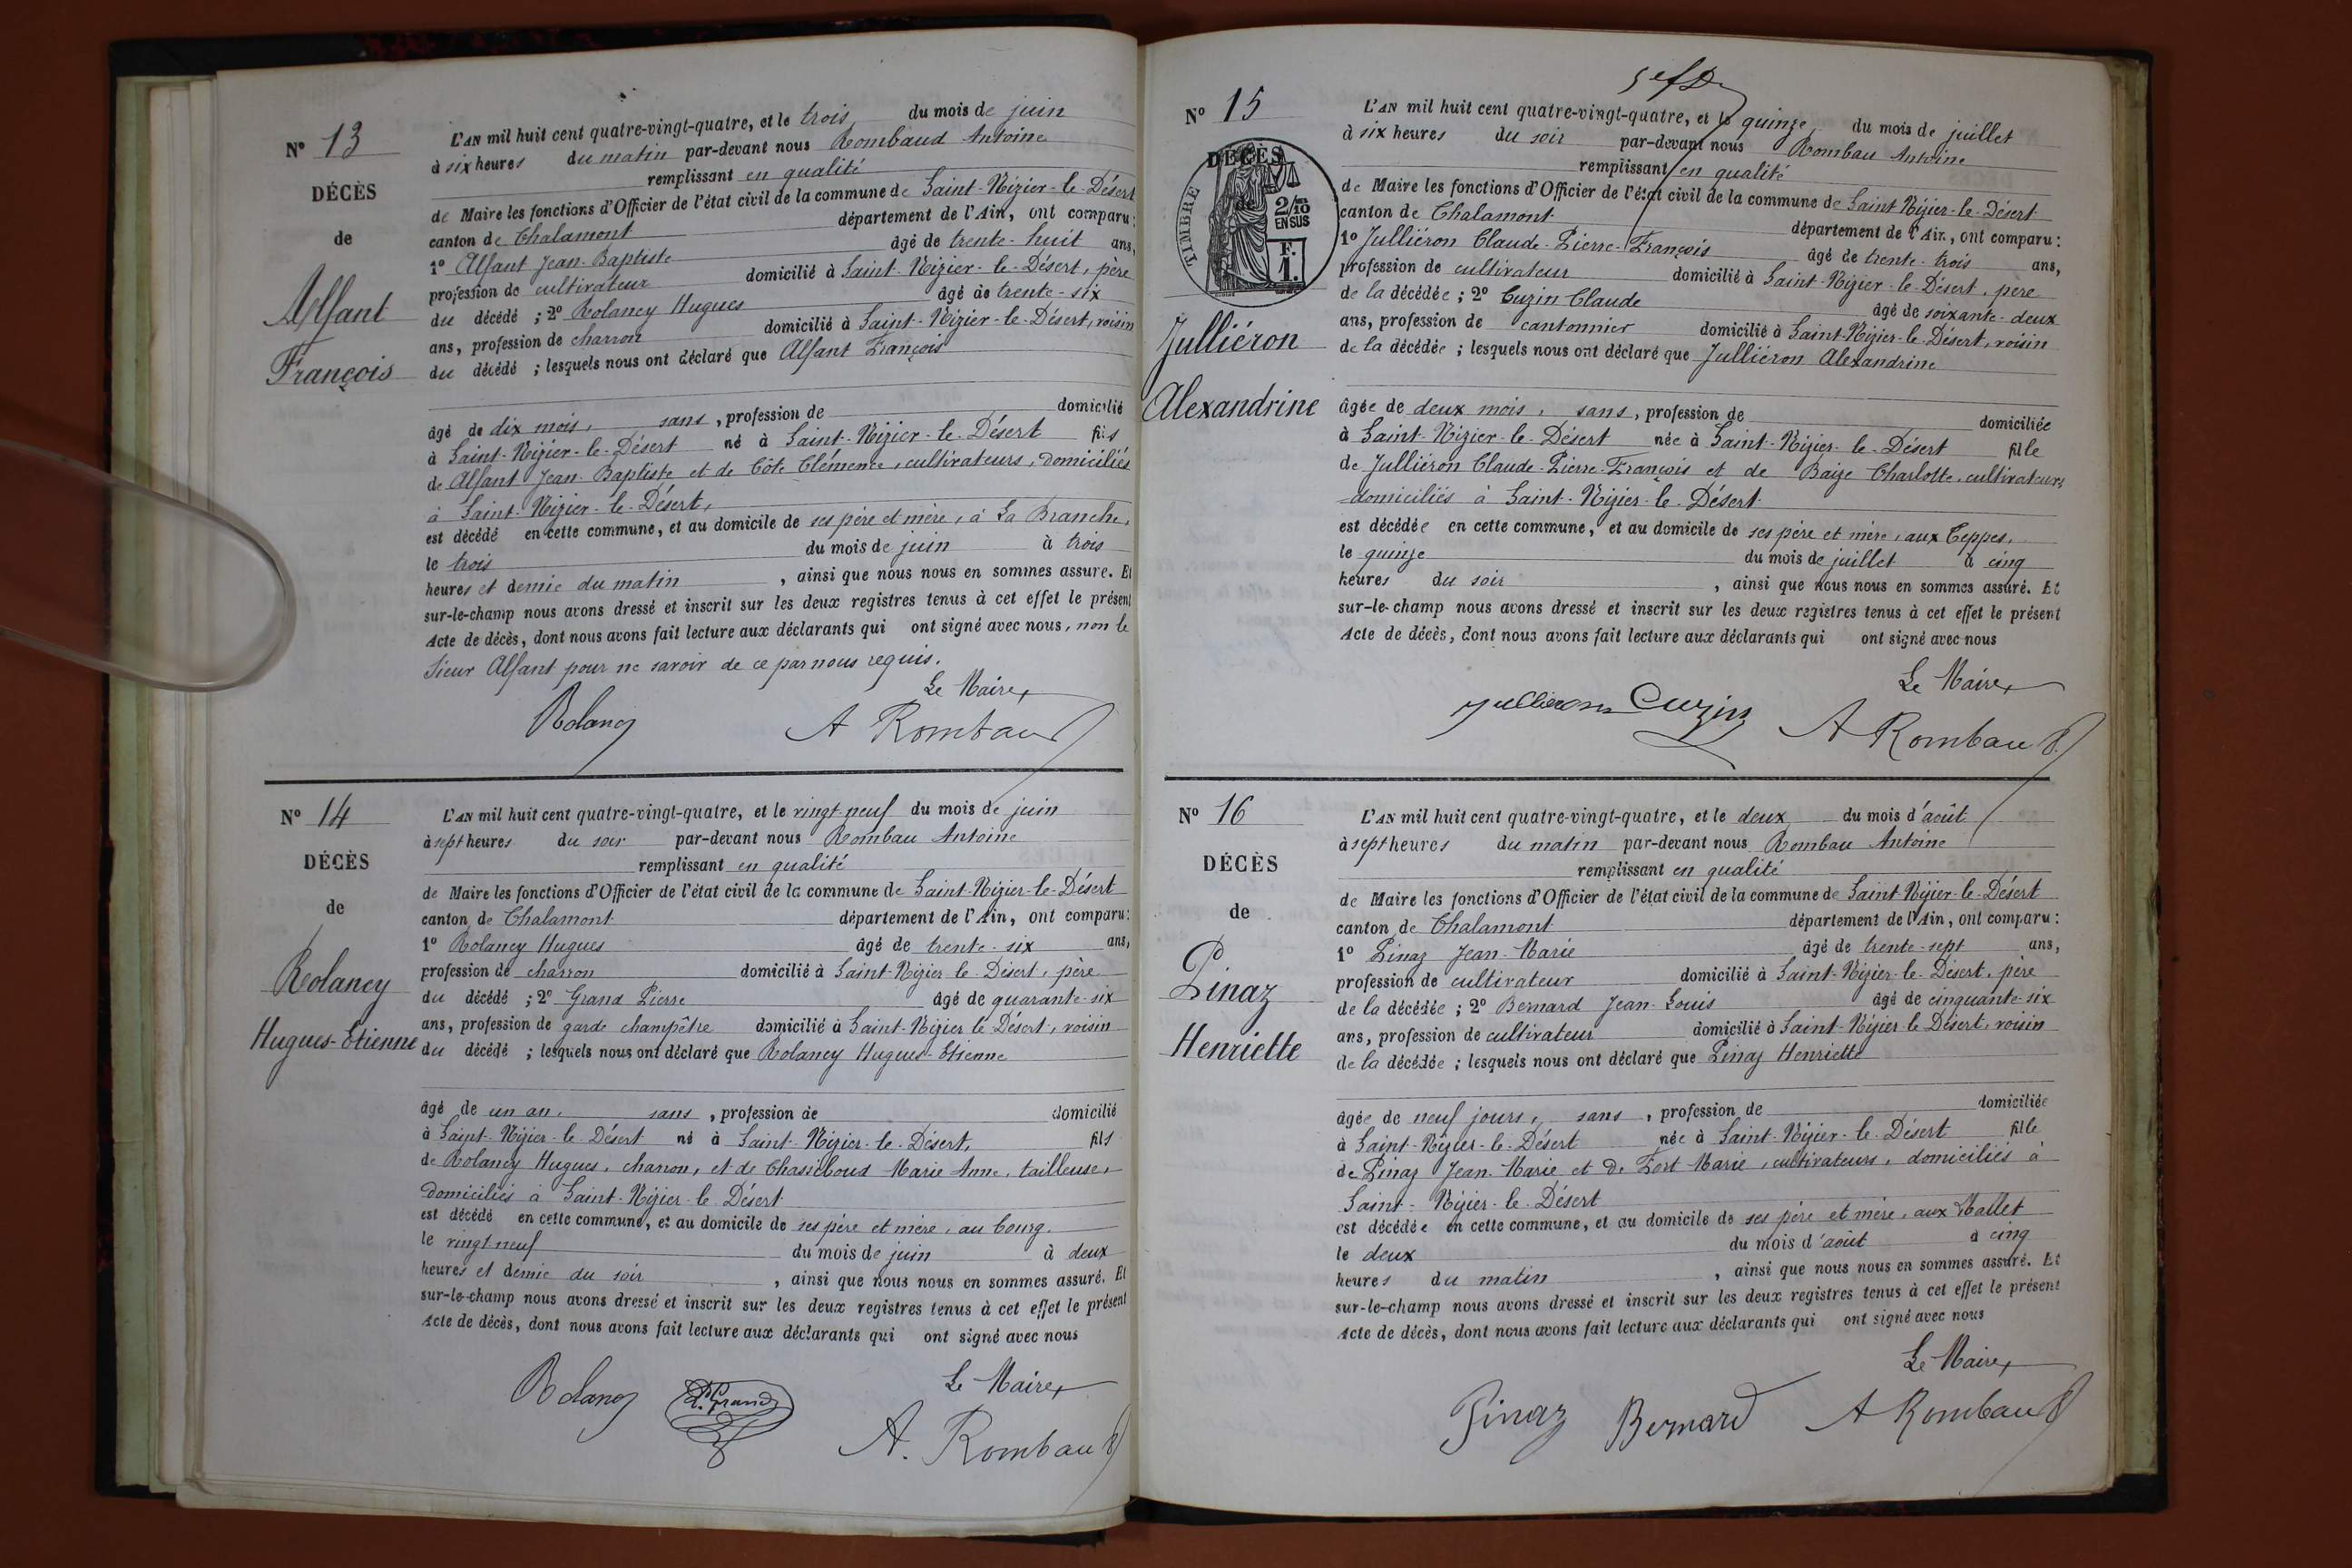 N° 13
DÉCÈS
de
Alfant
François
L'AN mil huit cent quatre-vingt-quatre, et le trois du mois de juin
à six heures du matin par-devant nous Rombaud Antoine
remplissant en qualité
de Maire les fonctions d'Officier de l'état civil de la commune de Saint-Nizier-le-Désert
canton de Chalamont département de l'Ain, ont comparu :
1° Alfant Jean-Baptiste âgé de trente-huit ans,
profession de cultivateur domicilié à Saint-Nizier-le-Désert, père
du décédé ; 2° Rolancy Hugues âgé de trente-six
ans, profession de charron domicilié à Saint-Nizier-le-Désert, voisin
du décédé ; lesquels nous ont déclaré que Alfant François
âgé de dix mois, sans, profession de domicilié
à Saint-Nizier-le-Désert né à Saint-Nizier-le-Désert fils
de Alfant Jean-Baptiste et de Côte Clémence, cultivateurs, domiciliés
à Saint-Nizier-le-Désert,
est décédé en cette commune, et au domicile de ses père et mère, à La Branche,
le trois du mois de juin à trois
heures et demie du matin, ainsi que nous nous en sommes assuré. Et
sur-le-champ nous avons dressé et inscrit sur les deux registres tenus à cet effet le présent
Acte de décès, dont nous avons fait lecture aux déclarants qui ont signé avec nous, non le
sieur Alfant pour ne savoir de ce par nous requis.
Le Maire,
Rolancy A Rombaud
N° 14
DÉCÈS
de
Rolancy
Hugues-Etienne
L'AN mil huit cent quatre-vingt-quatre, et le vingt neuf du mois de juin
à sept heures du soir par-devant nous Rombau Antoine
remplissant en qualité
de Maire les fonctions d'Officier de l'état civil de la commune de Saint-Nizier-le-Désert
canton de Chalamont département de l'Ain, ont comparu :
1° Rolancy Hugues âgé de trente-six ans,
profession de charron domicilié à Saint-Nizier le Désert, père
du décédé ; 2° Grand Pierre âgé de quarante-six
ans, profession de garde champêtre domicilié à Saint-Nizier le Désert, voisin
du décédé ; lesquels nous ont déclaré que Rolancy Hugues-Etienne
âgé de un an, sans, profession de domicilié
à Saint-Nizier-le-Désert né à Saint-Nizier-le-Désert, fils
de Rolancy Hugues, charron, et de Chassiboud Marie Anne, tailleuse,
domiciliés à Saint-Nizier-le-Désert
est décédé en cette commune, et au domicile de ses père et mère, au bourg.
le vingt neuf du mois de juin à deux
heures et demie du soir, ainsi que nous nous en sommes assuré. Et
sur-le-champ nous avons dressé et inscrit sur les deux registres tenus à cet effet le présent
Acte de décès, dont nous avons fait lecture aux déclarants qui ont signé avec nous
Le Maire,
Rolancy P. Grand A. Rombaud
N° 15
DÉCÈS
de
TIMBRE
2/10
EN SUS
F.
1.
Julliéron
Alexandrine
L'AN mil huit cent quatre-vingt-quatre, et le quinze du mois de juillet
à six heures du soir par-devant nous Rombau Antoine
remplissant en qualité
de Maire les fonctions d'Officier de l'état civil de la commune de Saint Nizier-le-Désert
canton de Chalamont département de l'Ain, ont comparu :
1° Julliéron Claude-Pierre-François âgé de trente-trois ans,
profession de cultivateur domicilié à Saint-Nizier-le-Désert, père
de la décédée ; 2° Cuzin Claude âgé de soixante-deux
ans, profession de cantonnier domicilié à Saint-Nizier-le-Désert, voisin
de la décédée ; lesquels nous ont déclaré que Julliéron Alexandrine
âgée de deux mois, sans, profession de domiciliée
à Saint-Nizier-le-Désert née à Saint-Nizier-le-Désert fille
de Julliéron Claude-Pierre-François et de Baize Charlotte, cultivateurs
domiciliés à Saint-Nizier-le-Désert
est décédée en cette commune, et au domicile de ses père et mère, aux Teppes,
le quinze du mois de juillet à cinq
heures du soir, ainsi que nous nous en sommes assuré. Et
sur-le-champ nous avons dressé et inscrit sur les deux registres tenus à cet effet le présent
Acte de décès, dont nous avons fait lecture aux déclarants qui ont signé avec nous
Le Maire,
Jullieron Cuzin A Rombaud
N° 16
DÉCÈS
de
Pinaz
Henriette
L'AN mil huit cent quatre-vingt-quatre, et le deux du mois d'août
à sept heures du matin par-devant nous Rombau Antoine
remplissant en qualité
de Maire les fonctions d'Officier de l'état civil de la commune de Saint-Nizier-le-Désert
canton de Chalamont département de l'Ain, ont comparu :
1° Pinaz Jean-Marie âgé de trente-sept ans,
profession de cultivateur domicilié à Saint-Nizier-le-Désert, père
de la décédée ; 2° Bernard Jean-Louis âgé de cinquante-six
ans, profession de cultivateur domicilié à Saint-Nizier le Désert, voisin
de la décédée ; lesquels nous ont déclaré que Pinaz Henriette
âgée de neuf jours, sans, profession de domiciliée
à Saint-Nizier-le-Désert née à Saint-Nizier-le-Désert fille
de Pinaz Jean-Marie et de Fort Marie, cultivateurs, domiciliés à
Saint-Nizier-le-Désert
est décédée en cette commune, et au domicile de ses père et mère, aux Mallet
le deux du mois d'août à cinq
heures du matin, ainsi que nous nous en sommes assuré. Et
sur-le-champ nous avons dressé et inscrit sur les deux registres tenus à cet effet le présent
Acte de décès, dont nous avons fait lecture aux déclarants qui ont signé avec nous
Le Maire,
Pinaz Bernard A Rombaud